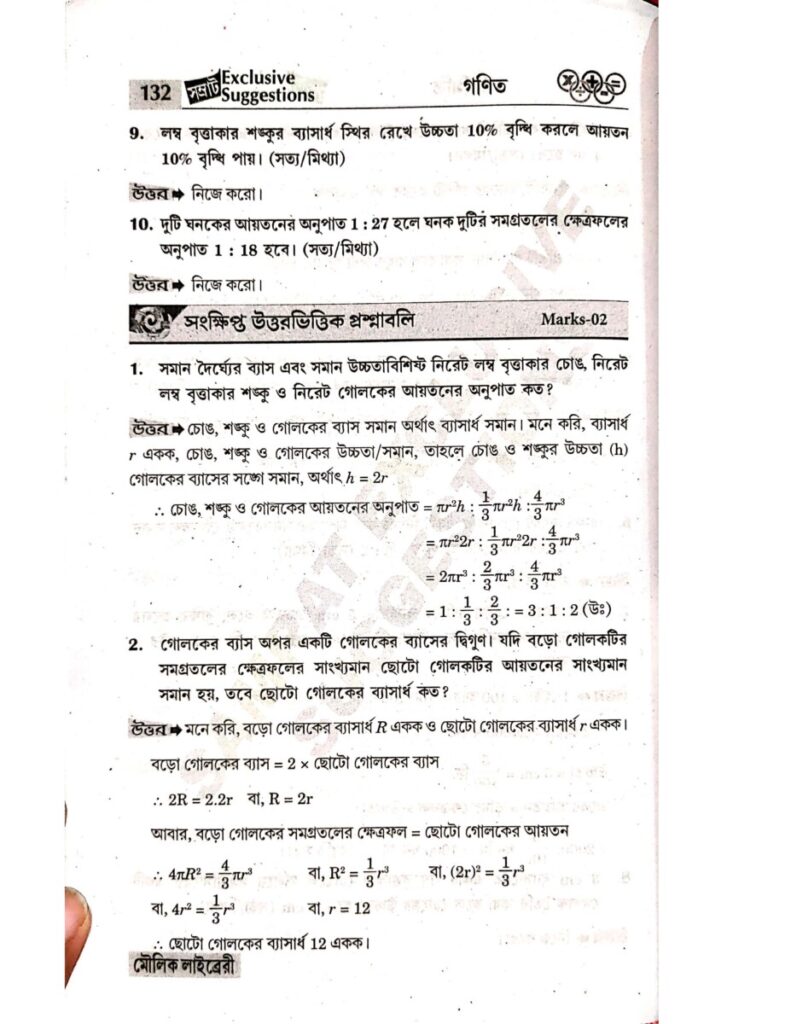 132 সম্রাট Exclusive Suggestions গণিত
9. লম্ব বৃত্তাকার শঙ্কুর ব্যাসার্ধ স্থির রেখে উচ্চতা 10% বৃদ্ধি করলে আয়তন
10% বৃদ্ধি পায়। (সত্য/মিথ্যা)
উত্তর ➡ নিজে করো।
10. দুটি ঘনকের আয়তনের অনুপাত 1 : 27 হলে ঘনক দুটির সমগ্রতলের ক্ষেত্রফলের
অনুপাত 1 : 18 হবে। (সত্য/মিথ্যা)
উত্তর ➡ নিজে করো।
সংক্ষিপ্ত উত্তরভিত্তিক প্রশ্নাবলি Marks-02
1. সমান দৈর্ঘ্যের ব্যাস এবং সমান উচ্চতাবিশিষ্ট নিরেট লম্ব বৃত্তাকার চোঙ, নিরেট
লম্ব বৃত্তাকার শঙ্কু ও নিরেট গোলকের আয়তনের অনুপাত কত?
উত্তর ➡ চোঙ, শঙ্কু ও গোলকের ব্যাস সমান অর্থাৎ ব্যাসার্ধ সমান। মনে করি, ব্যাসার্ধ
r একক, চোঙ, শঙ্কু ও গোলকের উচ্চতা/সমান, তাহলে চোঙ ও শঙ্কুর উচ্চতা (h)
গোলকের ব্যাসের সঙ্গে সমান, অর্থাৎ h = 2r
∴ চোঙ, শঙ্কু ও গোলকের আয়তনের অনুপাত = πr²h : 1/3 πr²h : 4/3 πr³
= πr²2r : 1/3 πr²2r : 4/3 πr³
= 2πr³ : 2/3 πr³ : 4/3 πr³
= 1 : 1/3 : 2/3 : = 3 : 1 : 2 (উঃ)
2. গোলকের ব্যাস অপর একটি গোলকের ব্যাসের দ্বিগুণ। যদি বড়ো গোলকটির
সমগ্রতলের ক্ষেত্রফলের সাংখ্যমান ছোটো গোলকটির আয়তনের সাংখ্যমান
সমান হয়, তবে ছোটো গোলকের ব্যাসার্ধ কত?
উত্তর ➡ মনে করি, বড়ো গোলকের ব্যাসার্ধ R একক ও ছোটো গোলকের ব্যাসার্ধ r একক।
বড়ো গোলকের ব্যাস = 2 × ছোটো গোলকের ব্যাস
∴ 2R = 2.2r বা, R = 2r
আবার, বড়ো গোলকের সমগ্রতলের ক্ষেত্রফল = ছোটো গোলকের আয়তন
∴ 4πR² = 4/3 πr³ বা, R² = 1/3 r³ বা, (2r)² = 1/3 r³
বা, 4r² = 1/3 r³ বা, r = 12
∴ ছোটো গোলকের ব্যাসার্ধ 12 একক।
মৌলিক লাইব্রেরী
SAMRAT EXCLUSIVE
SUGGESTIONS